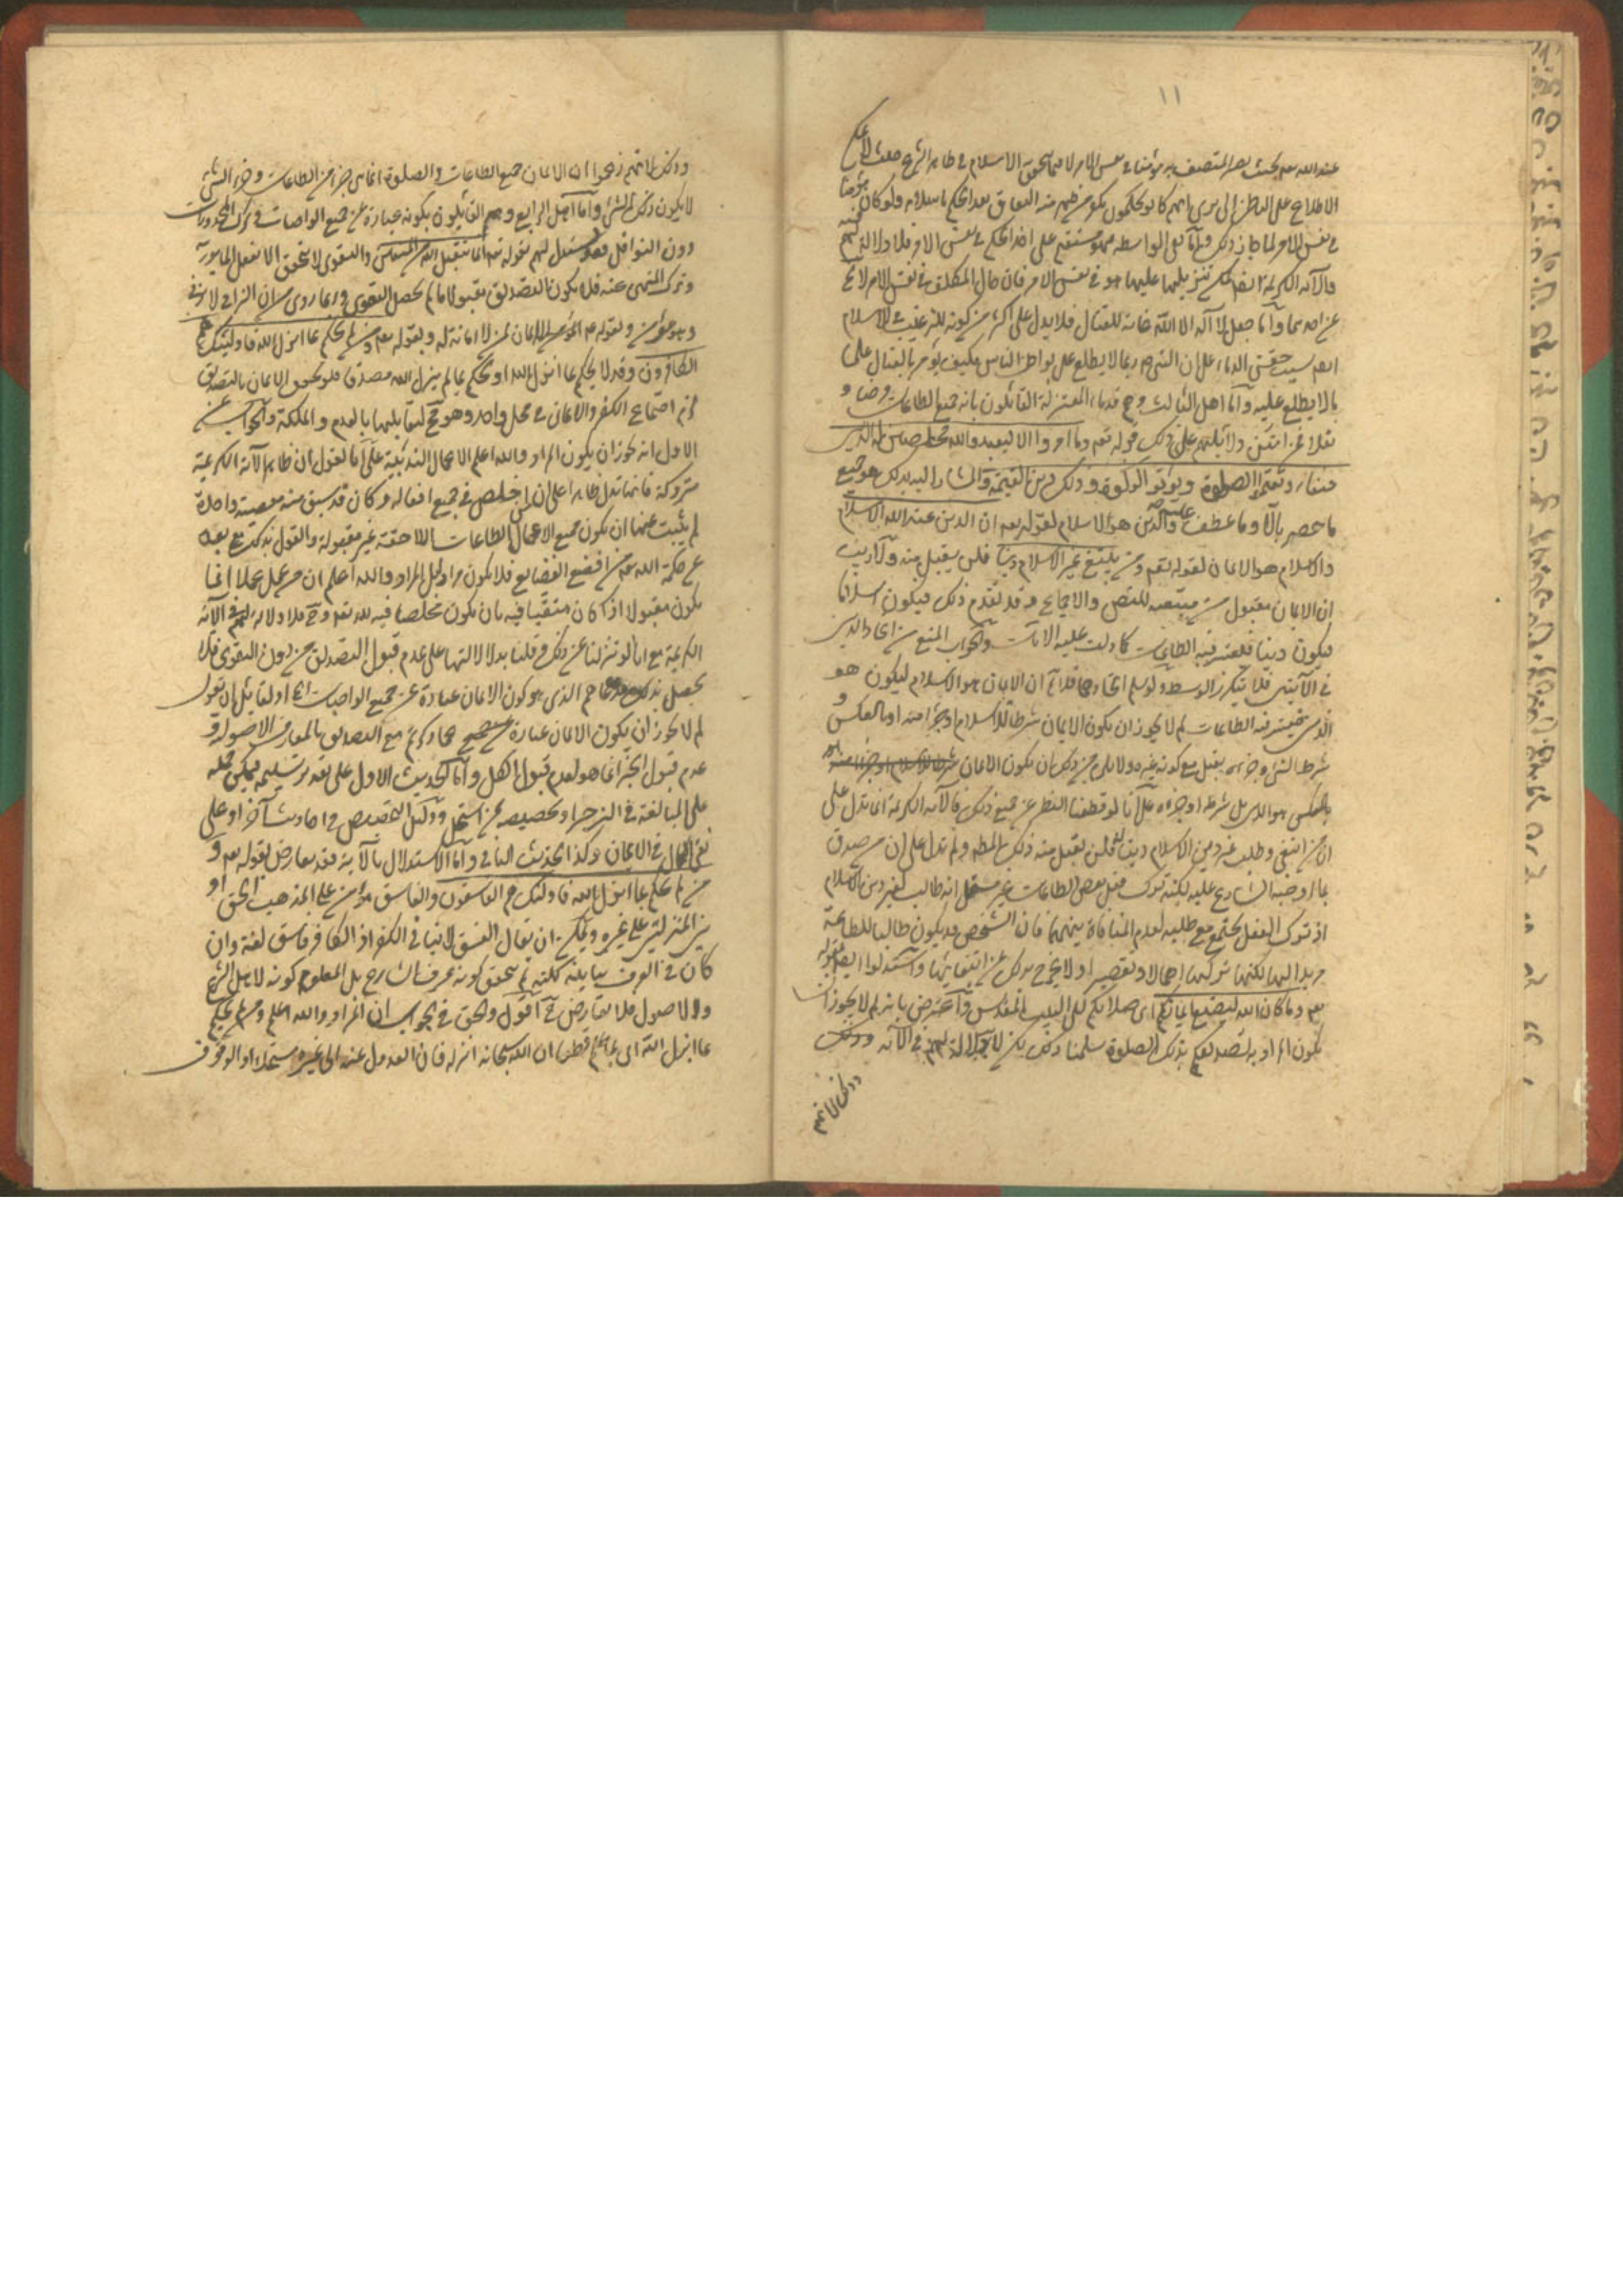 ١١
عند الله بعد بحيث يصير المتصف به مؤمنا في نفس الامر لا فيما يتحقق به الاسلام في ظاهر الشرع حيث لا يمكن
الاطلاع على الباطن الا ترى انهم كانوا يحكمون بكفر من ظهر منه النفاق بعد الحكم باسلامه ولو كان مؤمنا
في نفس الامر لما جاز ذلك واما
والآية الكريمة تنزيلهما عليهما هو في نفس الامر فان حال المكلف في نفس الامر لا
عن احدهما واما جعل لا اله الا الله غاية للقتال فلا يدل على اكثر من كونه للترغيب في الاسلام
بسبب حقن الدماء على ان النبي ص ربما لا يطلع على بواطن الناس فكيف يؤمر بالقتال على
ما لا يطلع عليه واما اهل الثالث وهم قدماء المعتزلة القائلون بانه جميع الطاعات فرضا و
نفلا فمن امتن دلائلهم على ذلك قوله تعه وما امروا الا ليعبدوا الله مخلصين له الدين
حنفاء ويقيموا الصلوة ويؤتوا الزكوة وذلك دين القيمة والمشار اليه بذلك هو جميع
ما حصر بالا وما عطف عليه والدين هو الاسلام لقوله تعه ان الدين عند الله الاسلام
والاسلام هو الايمان لقوله تعه ومن يبتغ غير الاسلام دينا فلن يقبل منه ولا ريب
ان الايمان مقبول من مبتغيه للنص والاجماع وقد تقدم ذلك فيكون اسلاما
فيكون دينا فيعتبر فيه الطاعات كما دلت عليه الآيات والجواب المنع من اتحاد الدين
في الآيتين فلا يتكرر الوسط ولو سلم اتحادهما فلا نم ان الايمان هو الاسلام ليكون هو
الدين فيعتبر فيه الطاعات لم لا يجوز ان يكون الايمان شرطا للاسلام او جزءا منه او بالعكس و
شرط الشئ وجزءه يقبل مع كونه غيره ولا يلزم من ذلك ان يكون الايمان هو
بالعكس هو الدين بل شرطه او جزءه على انا لو قطعنا النظر عن جميع ذلك فالآية الكريمة انما تدل على
ان من ابتغى وطلب غير دين الاسلام دينا له فلن يقبل منه ذلك المطلوب ولم تدل على ان من صدق
بما اوجبه الشارع عليه لكنه ترك فعل بعض الطاعات غير مستحل انه طالب لغير دين الاسلام
اذ ترك الفعل يجتمع مع طلبه لعدم المنافاة بينهما فان الشخص قد يكون طالبا للطاعة
مريدا لها لكنه تركها اهمالا وتقصيرا ولا يخرج بذلك عن ابتغائها واستدلوا ايضا بقوله
تعه وما كان الله ليضيع ايمانكم اى صلاتكم الى البيت المقدس واعترض بانه لم لا يجوز ان
يكون المراد به تصديقكم بتلك الصلوة سلمنا ذلك لكن لا دلالة لهم في الآية وذلك
وذلك لانهم
وذلك لانهم زعموا ان الايمان جميع الطاعات والصلوة انما هي جزء من الطاعات وجزء الشئ
لا يكون ذلك الشئ واما اهل الرابع وهم القائلون بكونه عبارة عن جميع الواجبات وترك المحظورات
دون النوافل فقد يستدل لهم بقوله تعه انما يتقبل الله من المتقين والتقوى لا يتحقق الا بفعل المأمور به
وترك المنهى عنه فلا يكون التصديق مقبولا ما لم يحصل التقوى وبما روى من ان الزاني لا يزنى
وهو مؤمن وبقوله ص لا ايمان لمن لا امانة له وبقوله تعه ومن لم يحكم بما انزل الله فاولئك هم
الكافرون وقد لا يحكم بما انزل الله او يحكم بما لم ينزل الله مصدقا فلو تحقق الايمان بالتصديق
لزم اجتماع الكفر والايمان في محل واحد وهو مح لتقابلهما بالعدم والملكة والجواب عن
الاول انه يجوز ان يكون المراد والله اعلم الاعمال الندبية على انا نقول ان ظاهر الآية الكريمة
متروكة فانها تدل ظاهرا على ان من اخلص في جميع افعاله وكان قد سبق منه معصية واحدة
لم يثبت عنها ان يكون جميع الاعمال الطاعات اللاحقة غير مقبولة والقول بذلك مع بعده
عن حكمة الله تعه من افضع الفضايع فلا يكون مرادا بل المراد والله اعلم ان من عمل عملا انما
يكون مقبولا اذا كان متقيا فيه بان يكون مخلصا فيه لله تعه وح فلا دلالة لهم في الآية
الكريمة مع انا لو تنزلنا عن ذلك وقلنا بدلالتها على عدم قبول التصديق من دون التقوى فلا
يحصل بذلك مدعاهم الذي هو كون الايمان عبارة عن جميع الواجبات اه ولقائل ان يقول
لم لا يجوز ان يكون الايمان عبارة عن جميع ما ذكرتم مع التصديق بالمعارف الاصولية و
عدم قبول الجزء انما هو لعدم قبول الكل واما الحديث الاول على تقدير تسليمه فيمكن حمله
على المبالغة في الزجر او تخصيصه بمن استحل ودليل التخصيص في احاديث اخر او على
نفى الكمال في الايمان وكذا الحديث الثاني واما الاستدلال بالآية فقد يعارض بقوله تعه و
من لم يحكم بما انزل الله فاولئك هم الفاسقون والفاسق مؤمن على المذهب الحق او
بين المنزلتين على غيره ويمكن ان يقال الفسق لا ينافي الكفر اذ الكافر فاسق لغة وان
كان في العرف يباينه لكنه لم يتحقق كونه عرف الشارع بل المعلوم كونه لاهل الشرع
والاصول فلا تعارض ح اقول والحق في الجواب ان المراد والله اعلم ومن لم يحكم
بما انزل الله اى بما علم قطعا ان الله سبحانه انزله فان العدول عنه الى غيره مستحلا او الوقوف